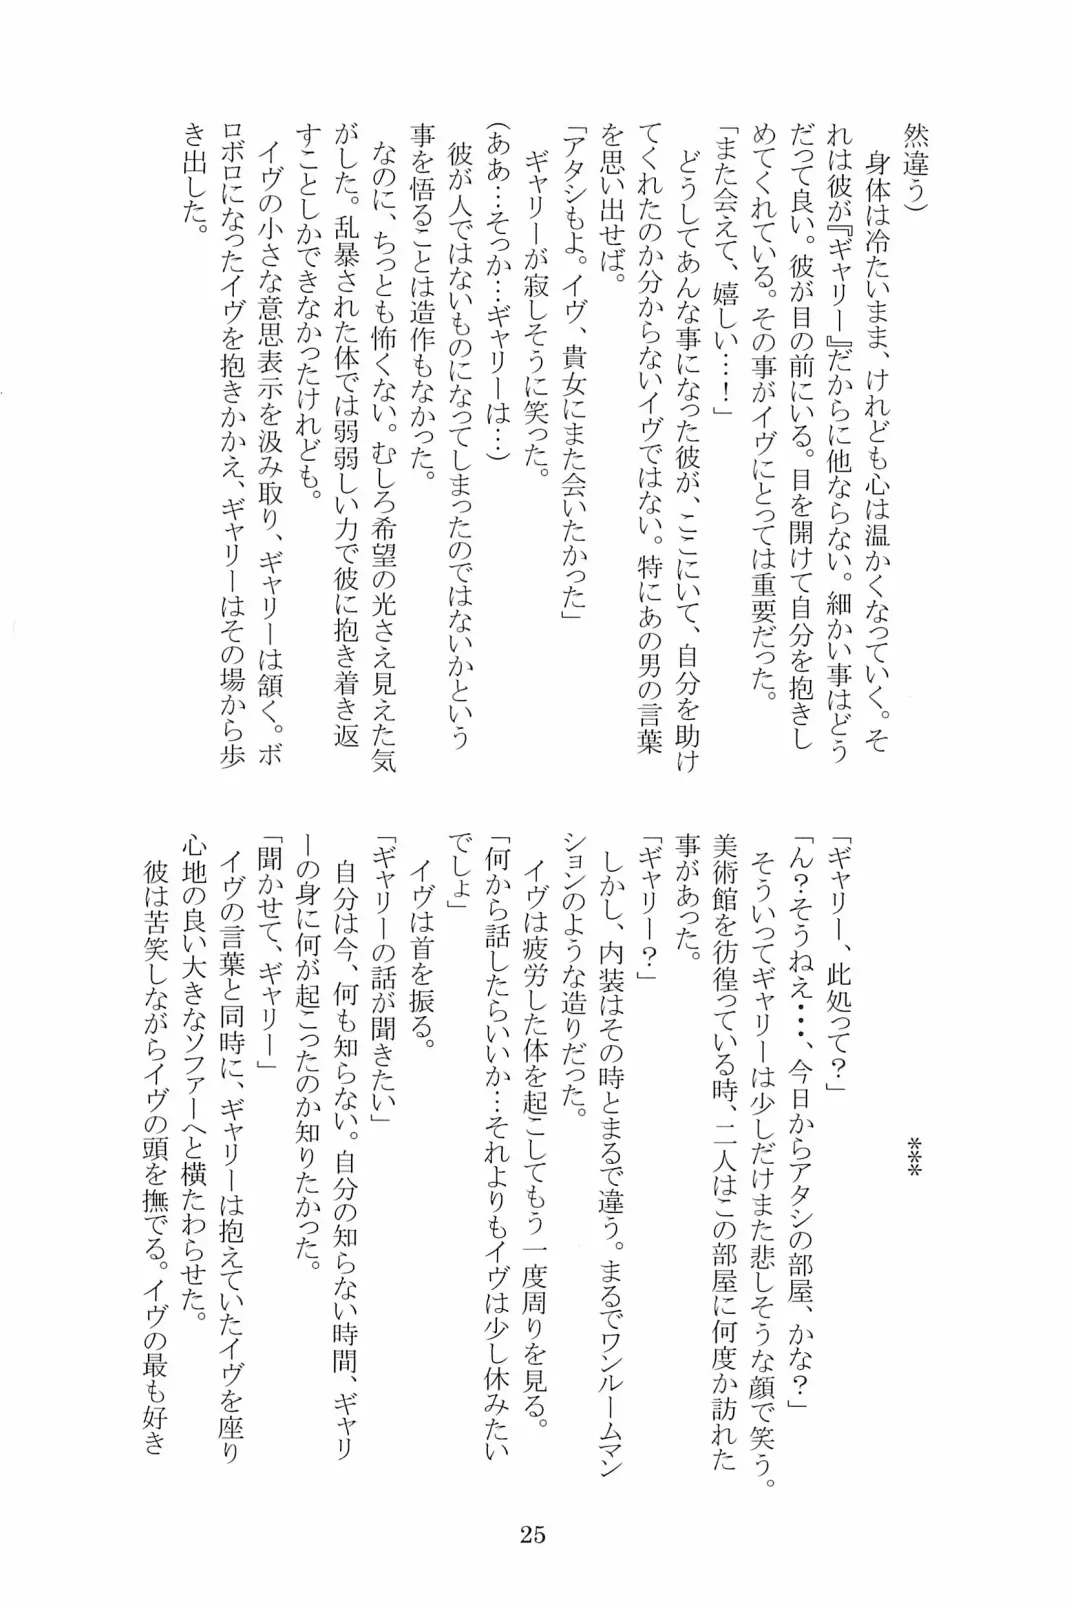 然違う)
　身体は冷たいまま、けれども心は温かくなっていく。そ
れは彼が『ギャリー』だからに他ならない。細かい事はどう
だって良い。彼が目の前にいる。目を開けて自分を抱きし
めてくれている。その事がイヴにとっては重要だった。
「また会えて、嬉しい…！」
　どうしてあんな事になった彼が、ここにいて、自分を助け
てくれたのか分からないイヴではない。特にあの男の言葉
を思い出せば。
「アタシもよ。イヴ、貴女にまた会いたかった」
　ギャリーが寂しそうに笑った。
(ああ…そっか…ギャリーは…)
　彼が人ではないものになってしまったのではないかという
事を悟ることは造作もなかった。
　なのに、ちっとも怖くない。むしろ希望の光さえ見えた気
がした。乱暴された体では弱弱しい力で彼に抱き着き返
すことしかできなかったけれども。
　イヴの小さな意思表示を汲み取り、ギャリーは頷く。ボ
ロボロになったイヴを抱きかかえ、ギャリーはその場から歩
き出した。
***
「ギャリー、此処って？」
「ん？そうねえ・・・、今日からアタシの部屋、かな？」
　そういってギャリーは少しだけまた悲しそうな顔で笑う。
美術館を彷徨っている時、二人はこの部屋に何度か訪れた
事があった。
「ギャリー？」
　しかし、内装はその時とまるで違う。まるでワンルームマン
ションのような造りだった。
　イヴは疲労した体を起こしてもう一度周りを見る。
「何から話したらいいか…それよりもイヴは少し休みたい
でしょ」
　イヴは首を振る。
「ギャリーの話が聞きたい」
　自分は今、何も知らない。自分の知らない時間、ギャリ
ーの身に何が起こったのか知りたかった。
「聞かせて、ギャリー」
　イヴの言葉と同時に、ギャリーは抱えていたイヴを座り
心地の良い大きなソファーへと横たわらせた。
　彼は苦笑しながらイヴの頭を撫でる。イヴの最も好き
25